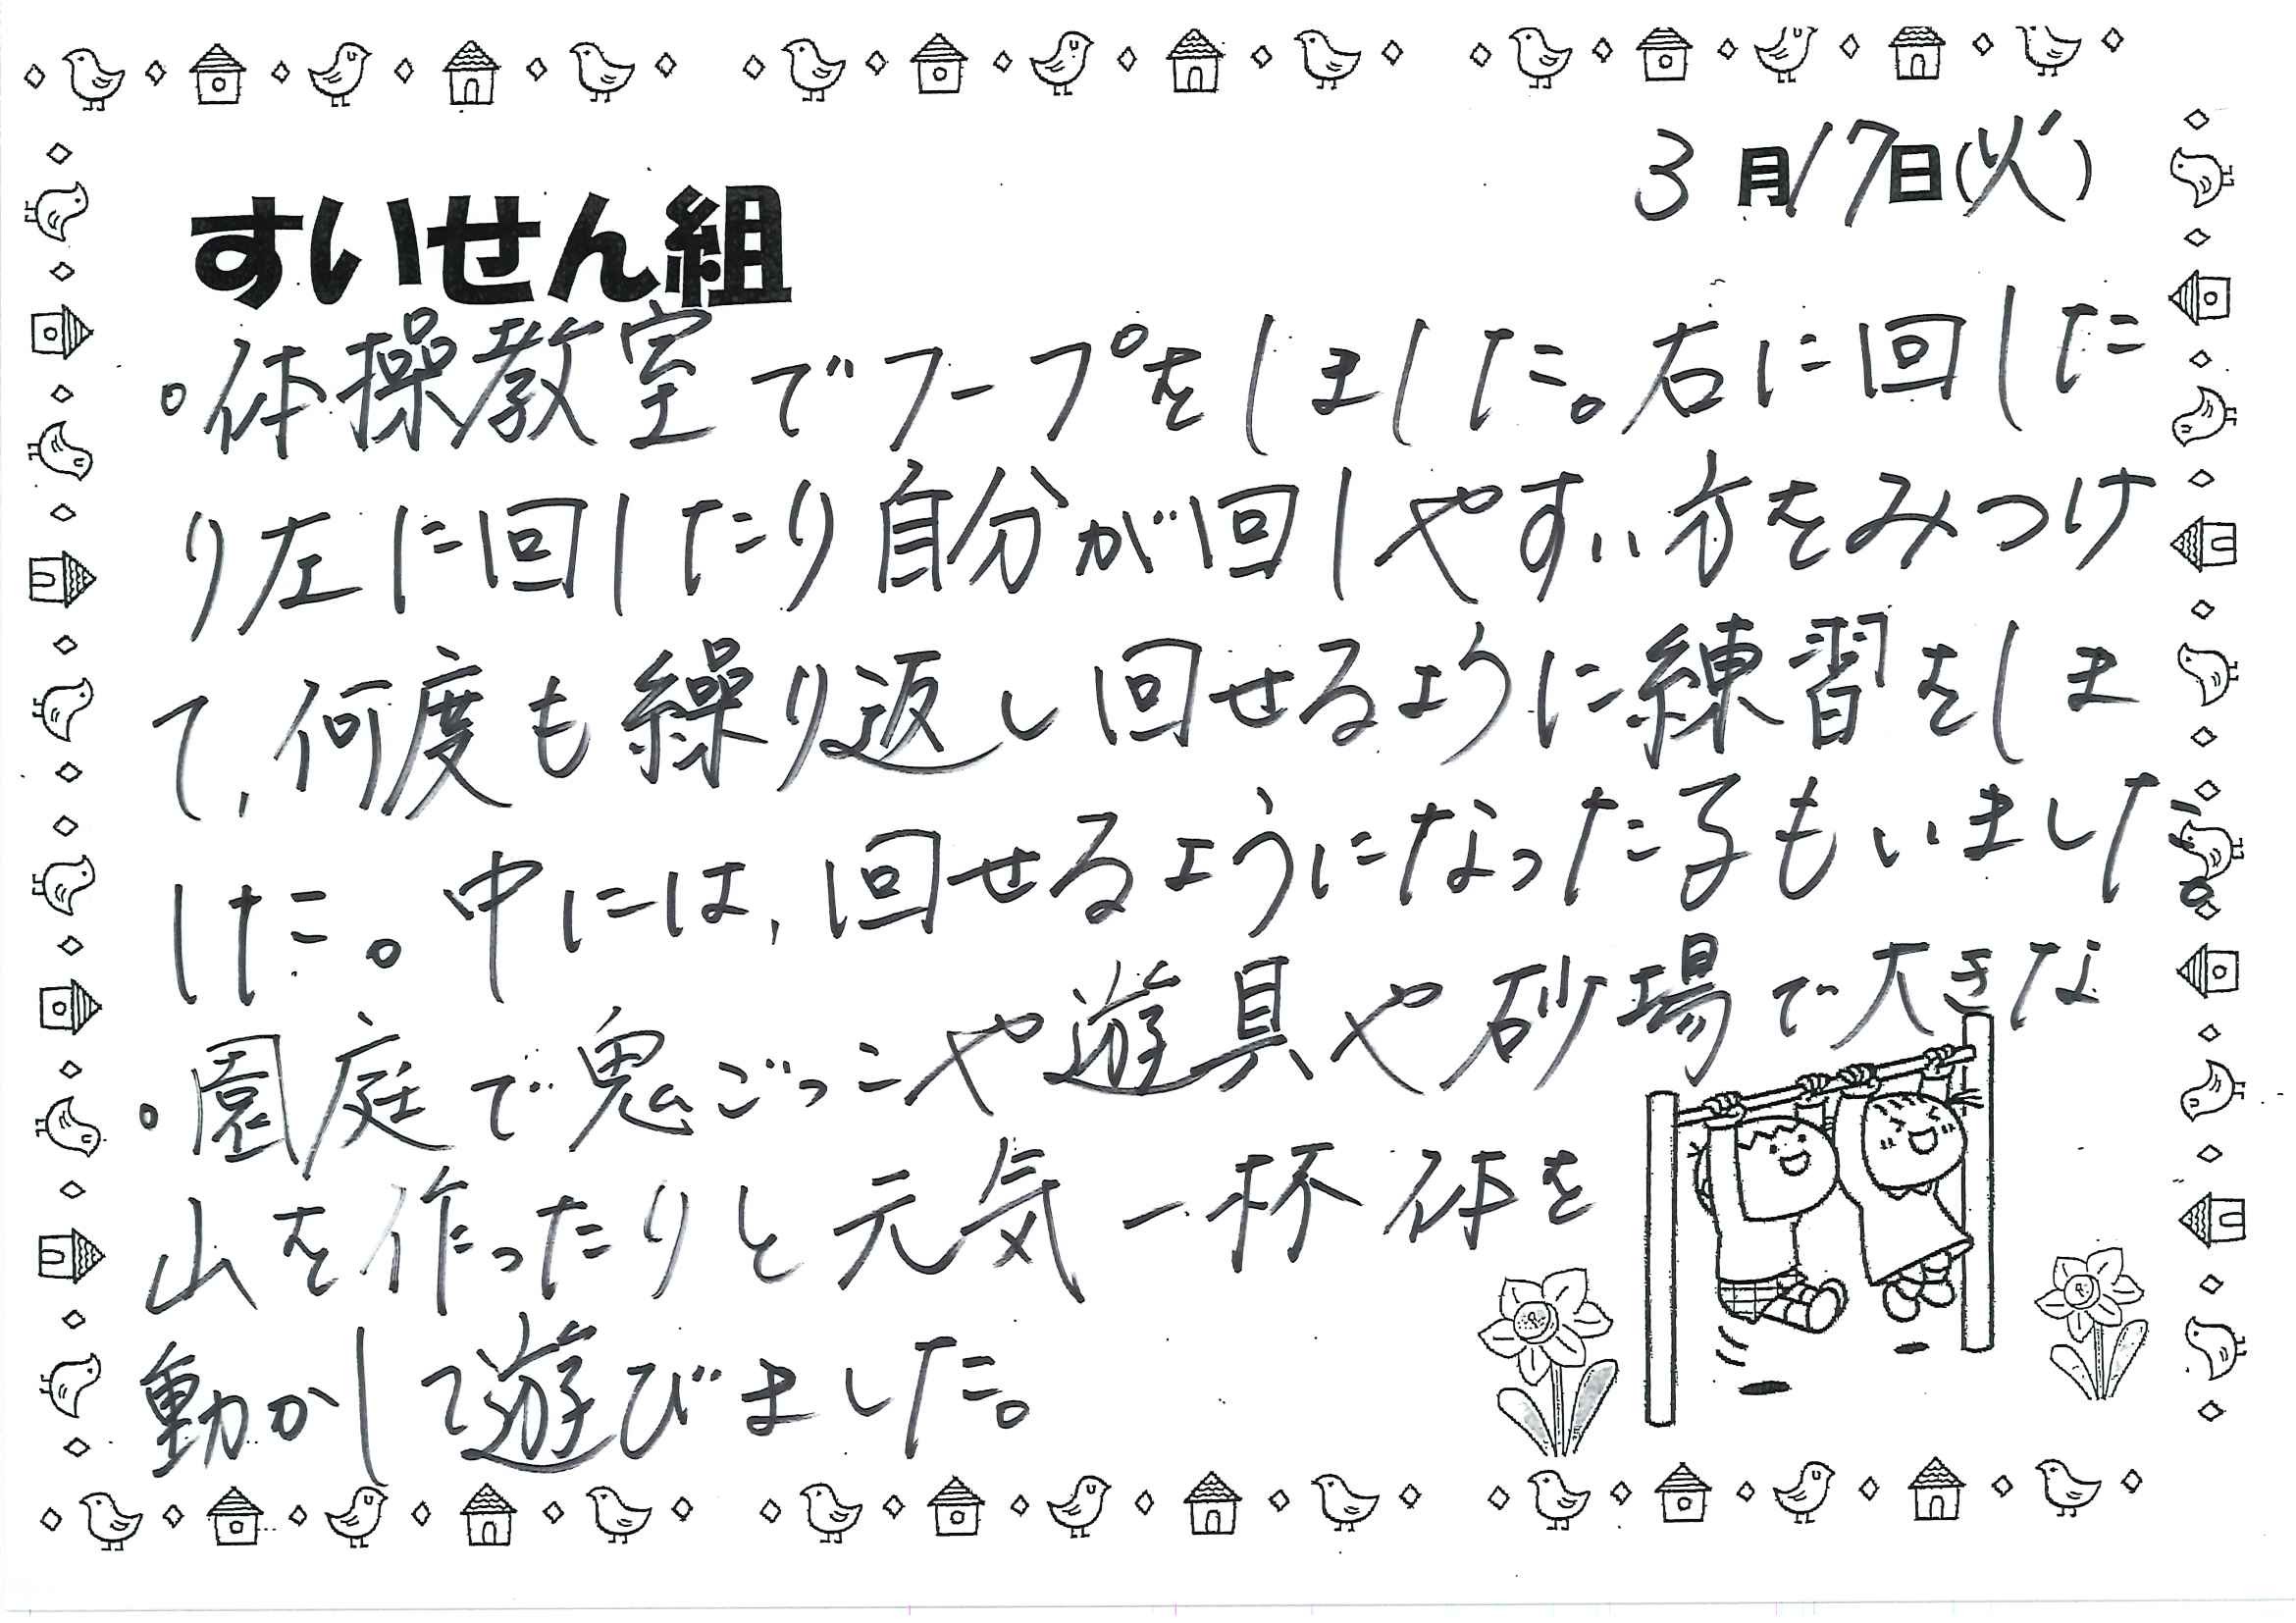 3月17日(火)
すいせん組
。体操教室でフープをしました。右に回した
り左に回したり自分が回しやすい方をみつけ
て、何度も繰り返し回せるように練習をしま
した。中には、回せるようになった子もいました。
。園庭で鬼ごっこや遊具や砂場で大きな
山を作ったりと元気一杯体を
動かして遊びました。